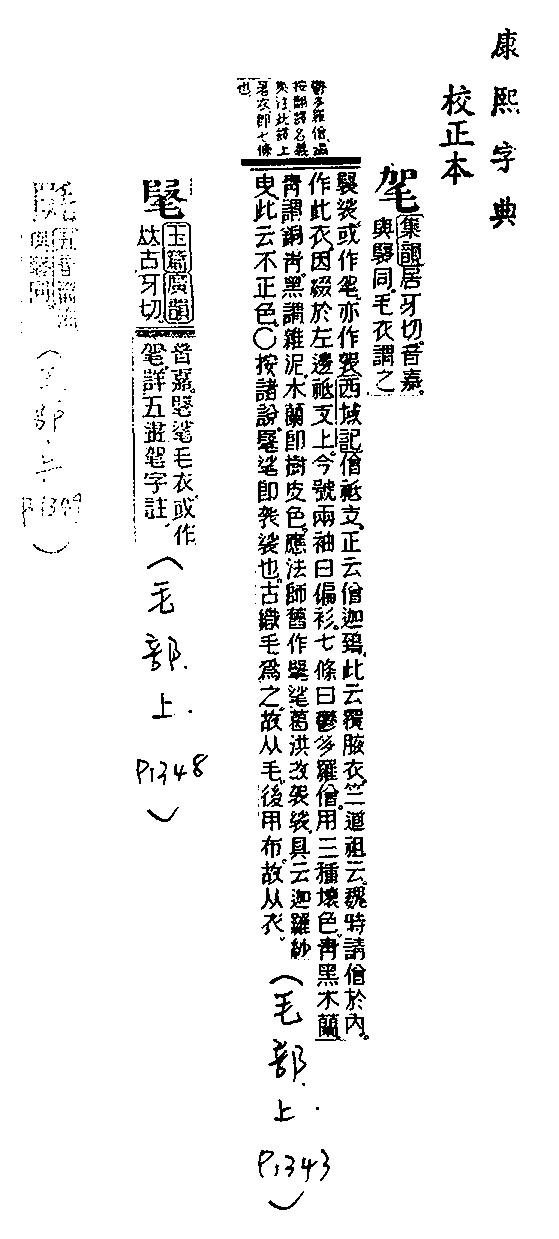 康熙字典
校正本
毠 集韻居牙切。音嘉。
與㲣同。毛衣謂之
㲣㲚。或作毠。亦作袈。西域記。僧祗支。正云僧迦鵄。此云覆腋衣。竺道祖云。魏時請僧於內。
作此衣。因綴於左邊祗支上。今號兩袖曰偏衫。七條曰鬱多羅僧。用三種壞色。靑黑木蘭。
靑謂銅靑。黑謂雜泥。木蘭卽樹皮色。應法師舊作㲣㲚。葛洪改袈裟。具云迦羅紗
曳。此云不正色。〇按諸說。㲣㲚卽袈裟也。古織毛爲之。故从毛。後用布。故从衣。
(毛部.上. P1343)
鬱多羅僧
按翻譯名義
集注此譯上
著衣卽七條
也
㲣 玉篇廣韻
𠀤古牙切
音嘉。㲣㲚毛衣。或作
毠。詳五畫毠字註。
(毛部.上. P1348)
五音篇海
與㲣同
P1349)